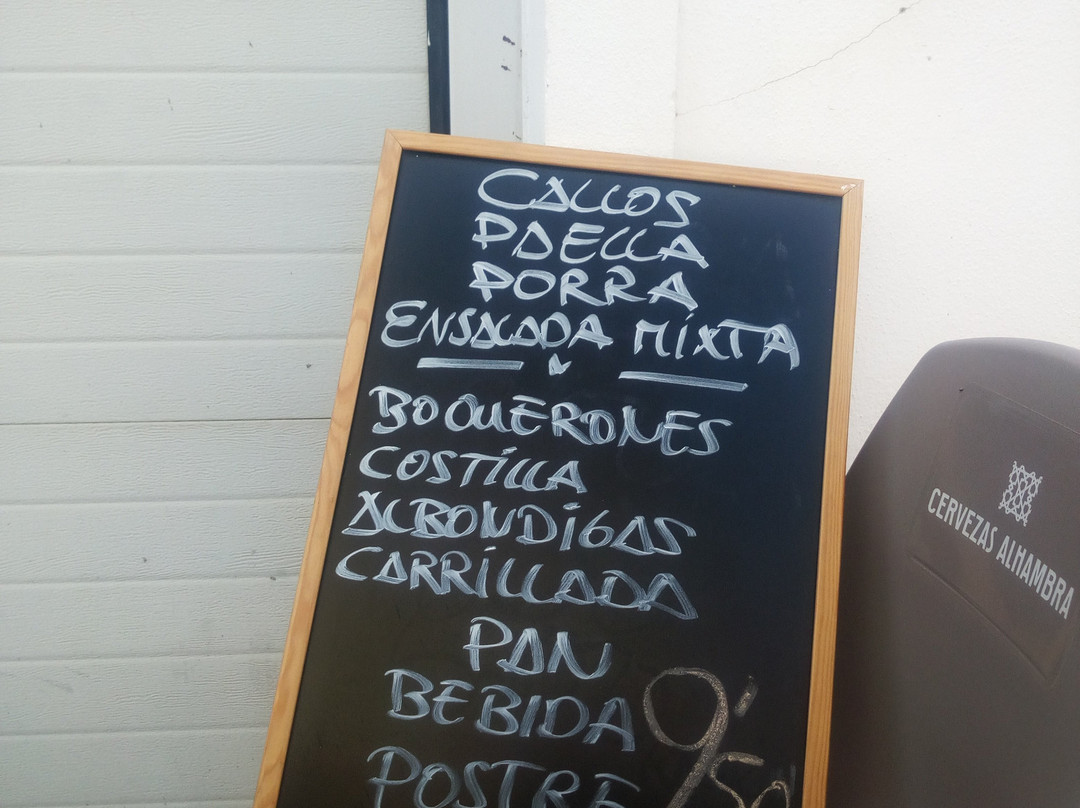 CALLOS
PAELLA
PORRA
ENSALADA MIXTA
BOQUERONES
COSTILLA
ALBONDIGAS
CARRILLADA
PAN
BEBIDA
POSTRE
9'50
CERVEZAS ALHAMBRA